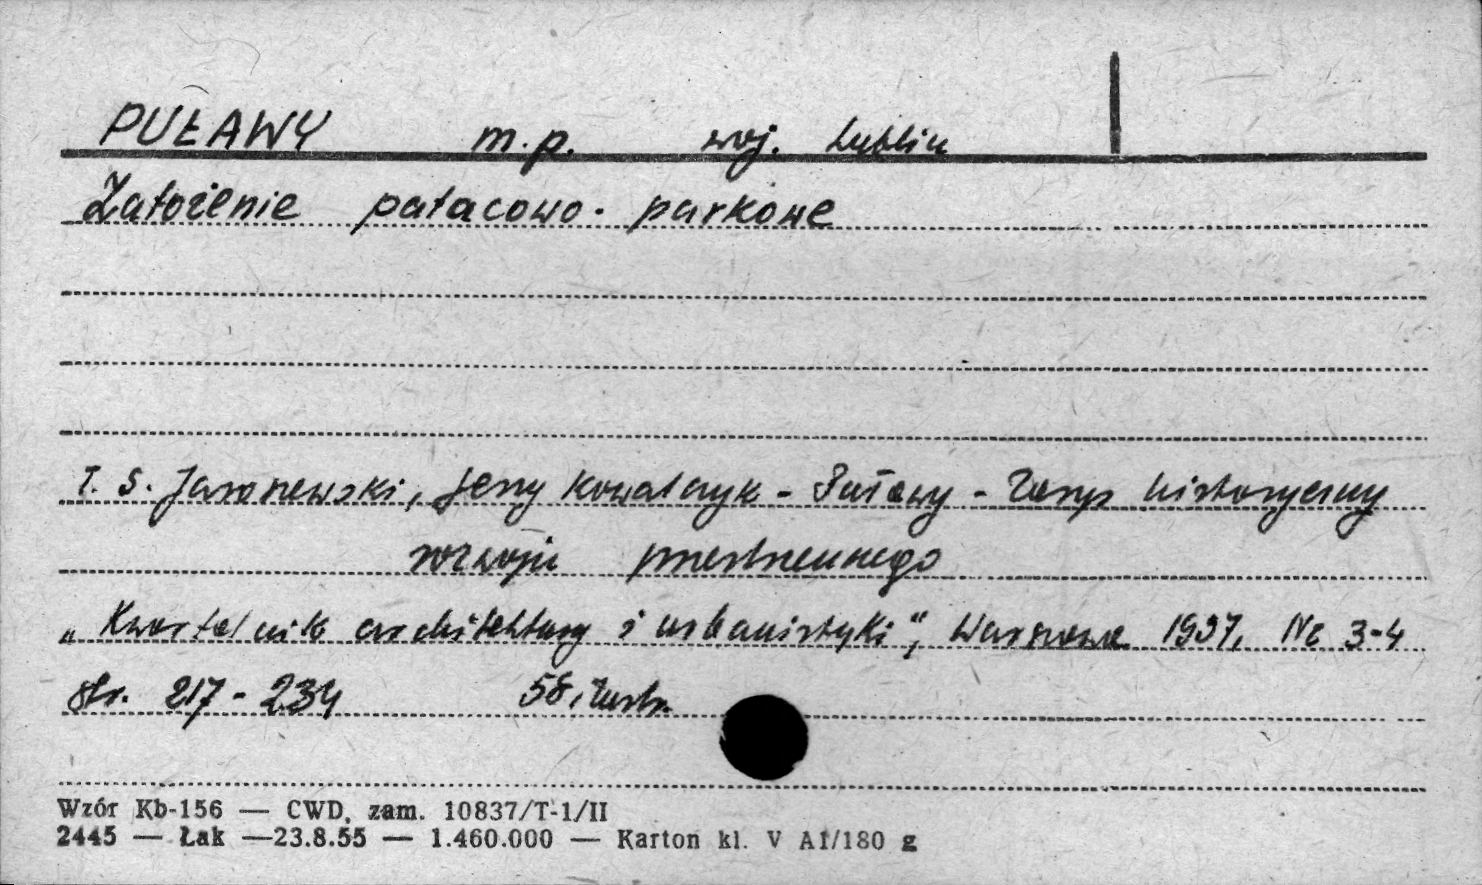 PUŁAWY m.p. woj. Lublin
Założenie pałacowo-parkowe
T. S. Jaroszewski, Jerzy Kowalczyk - Puławy - Zarys historyczny
rozwoju przestrzennego
„Kwartalnik architektury i urbanistyki”, Warszawa 1957, Nr 3-4
str. 217-234 58 ilustr.
Wzór Kb-156 — CWD, zam. 10837/T-1/II
2445 — Łak —23.8.55 — 1.460.000 — Karton kl. V A1/180 g